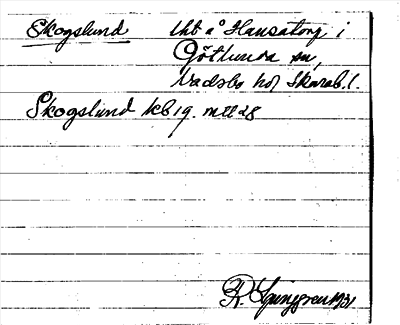 Skogslund lht å Hansatorp i
Götlunda sn,
Vadsbo hd Skarab. l.
Skogslund kb 19. mtl 28
R. Ljunggren 1931